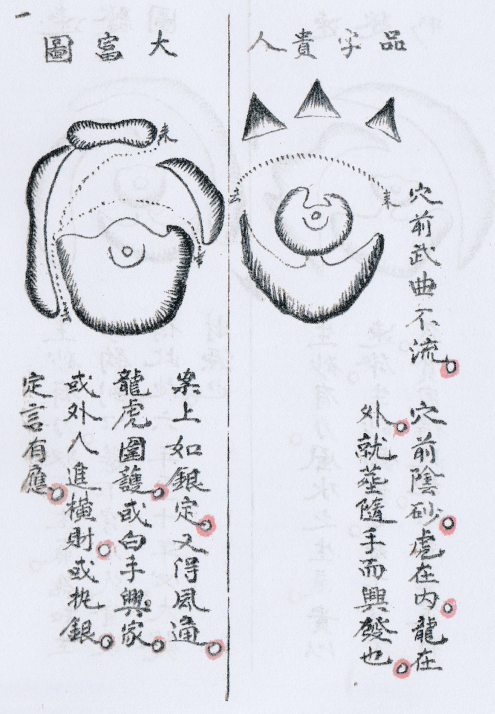 品字貴人
來
去
穴前武曲不流。
穴前陰砂。虎在內。龍在
外。就塟隨手而興發也。
大富圖
來
案上如銀定。又得風通。
龍虎圍護。或白手興家。
或外人進橫財。或執銀。
定言有應。